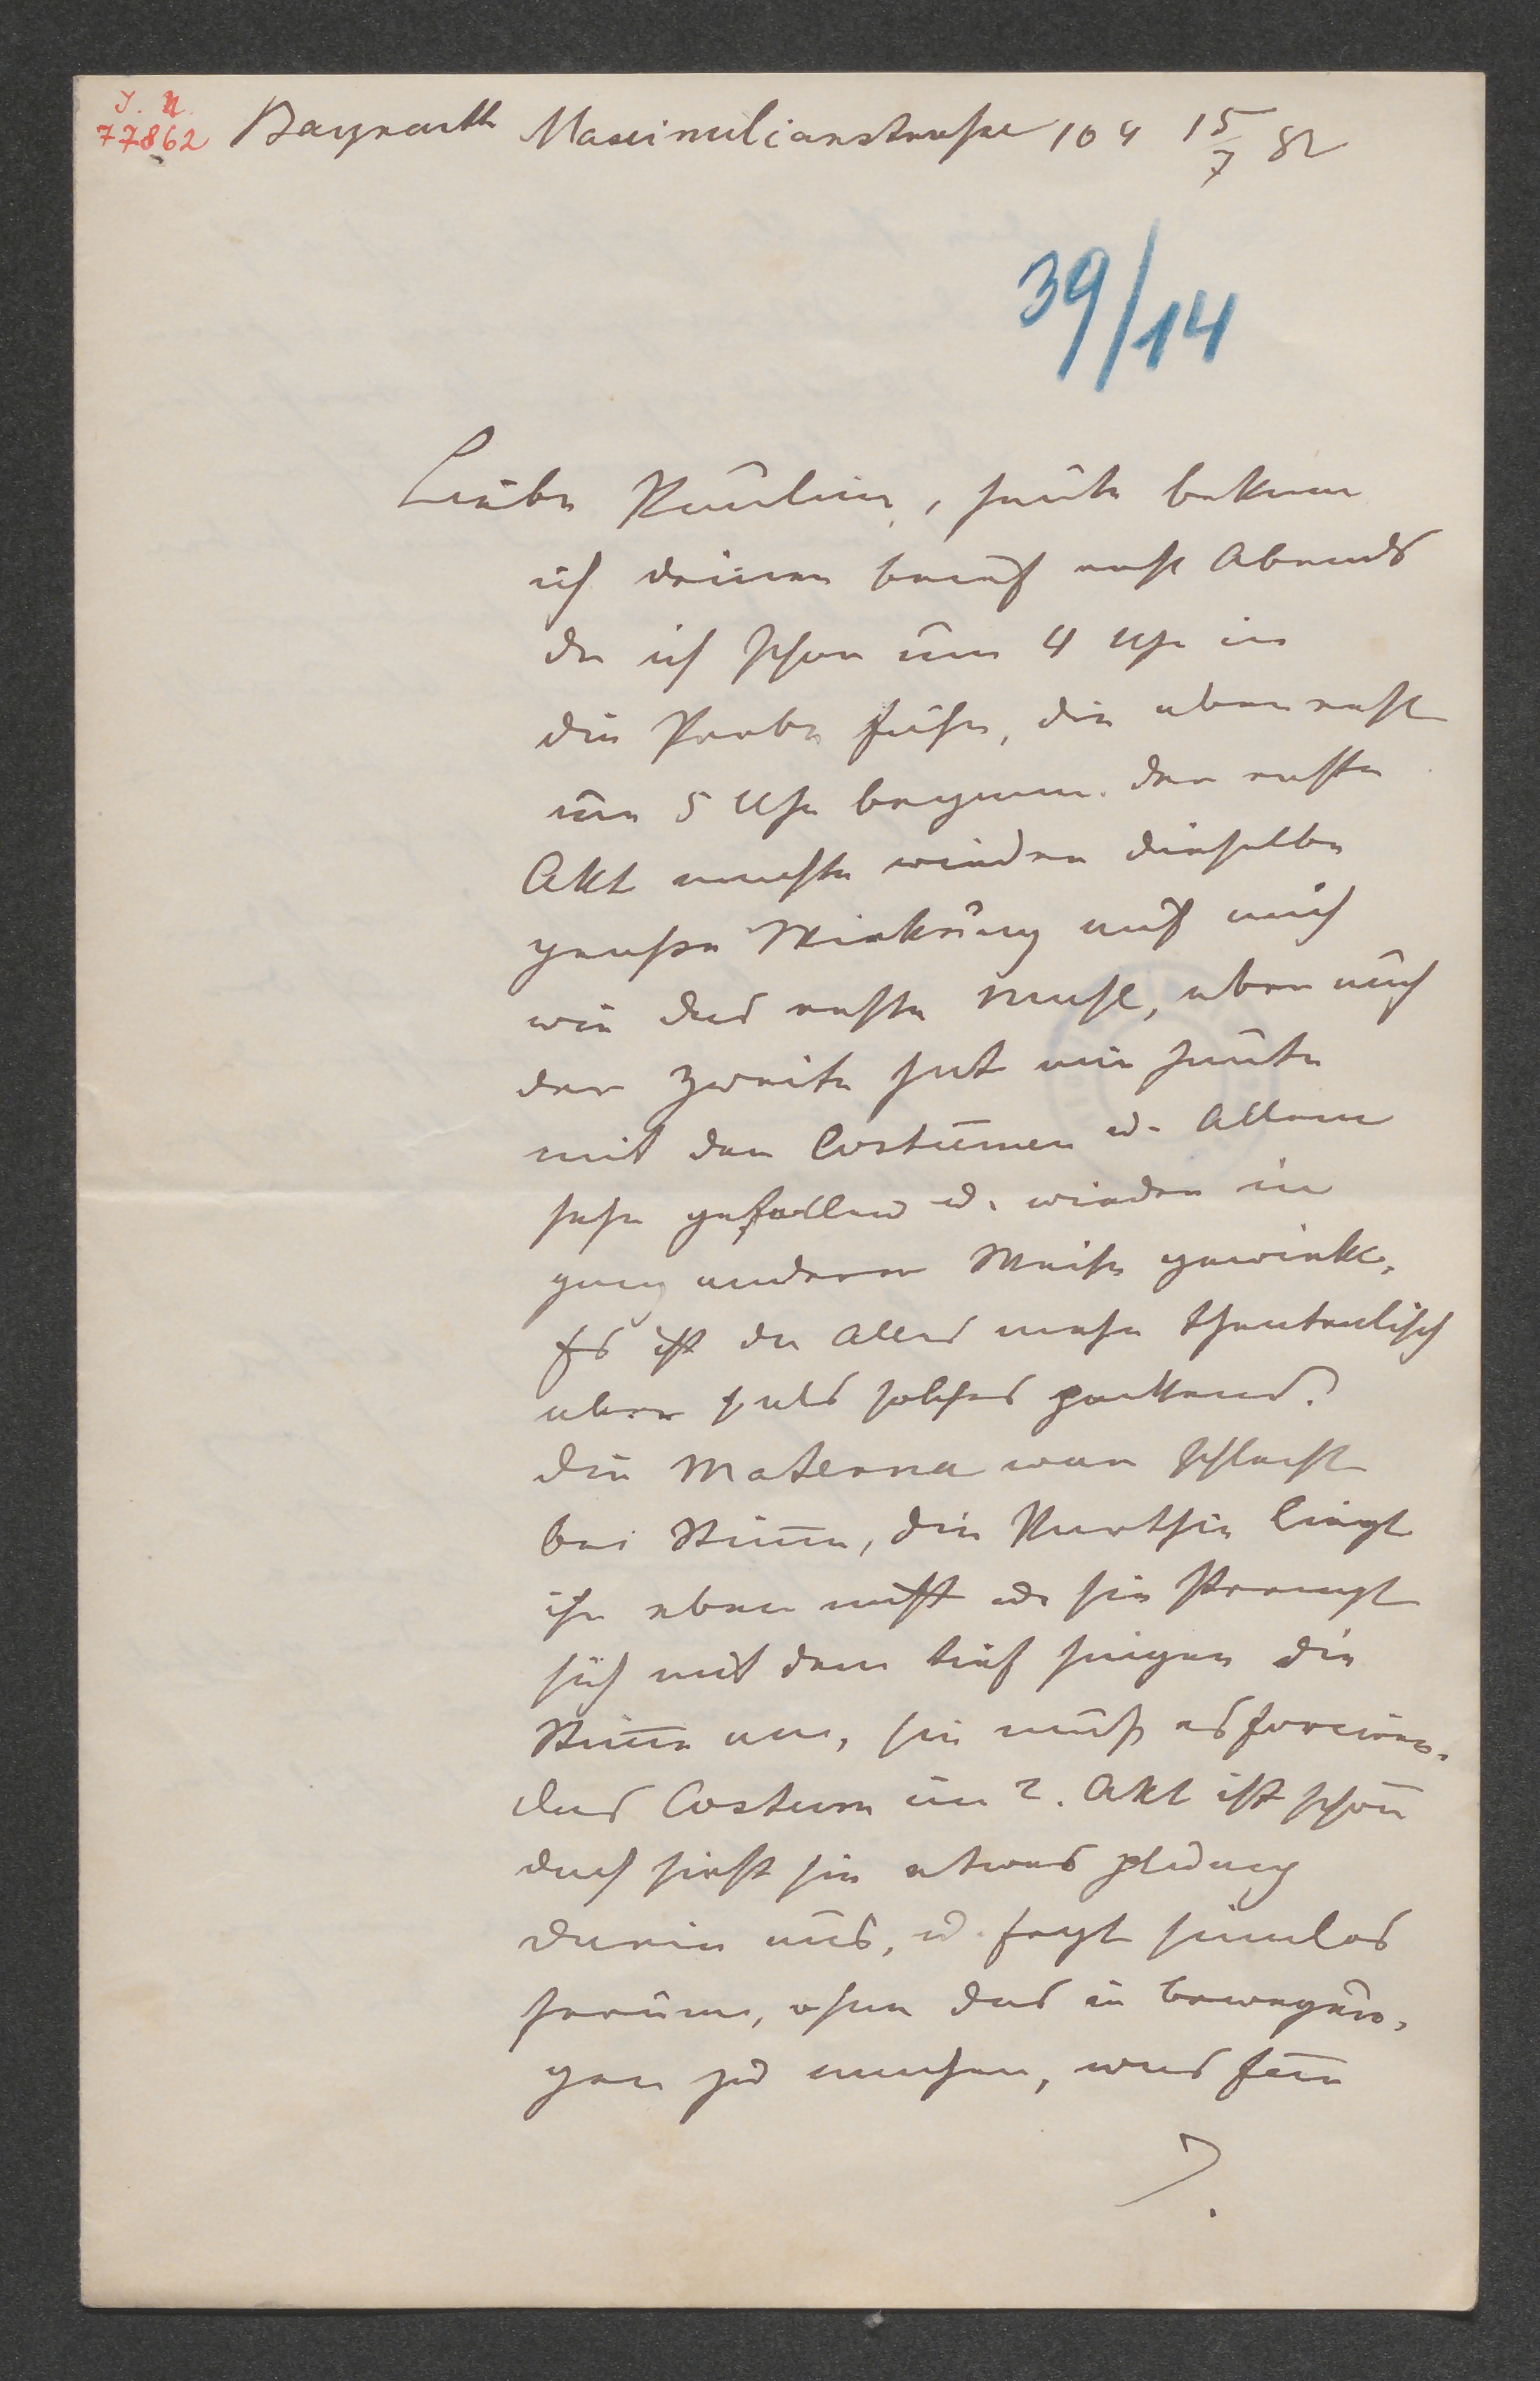 J. N.
77862
Bayreuth Maximilianstraße 104 15/7 82
39/14
Liebe Pauline, heute bekam
ich deinen brief erst Abends
da ich schon um 4 Uhr in
die Probe fuhr, die aber erst
um 5 Uhr begann. der erste
Akt machte wieder dieselbe
große Wirkung auf mich
wie das erste Mahl, aber auch
der zweite hat mir heute
mit den Costümen u. Allem
sehr gefallen u. wieder in
ganz anderer Weise gewirkt,
Es ist da Alles mehr theatralisch
aber als solches packend.
die Materna war schlecht
bei Stim̅e, die Parthie liegt
ihr eben nicht u. sie strengt
sich mit dem tief singen die
Stim̅e an, sie muß es forciren.
das Costum im 2. Akt ist schön
doch sieht sie etwas
darin aus, u. fegt sinnlos
herum, ohne das in bewegun,
gen zu machen, was